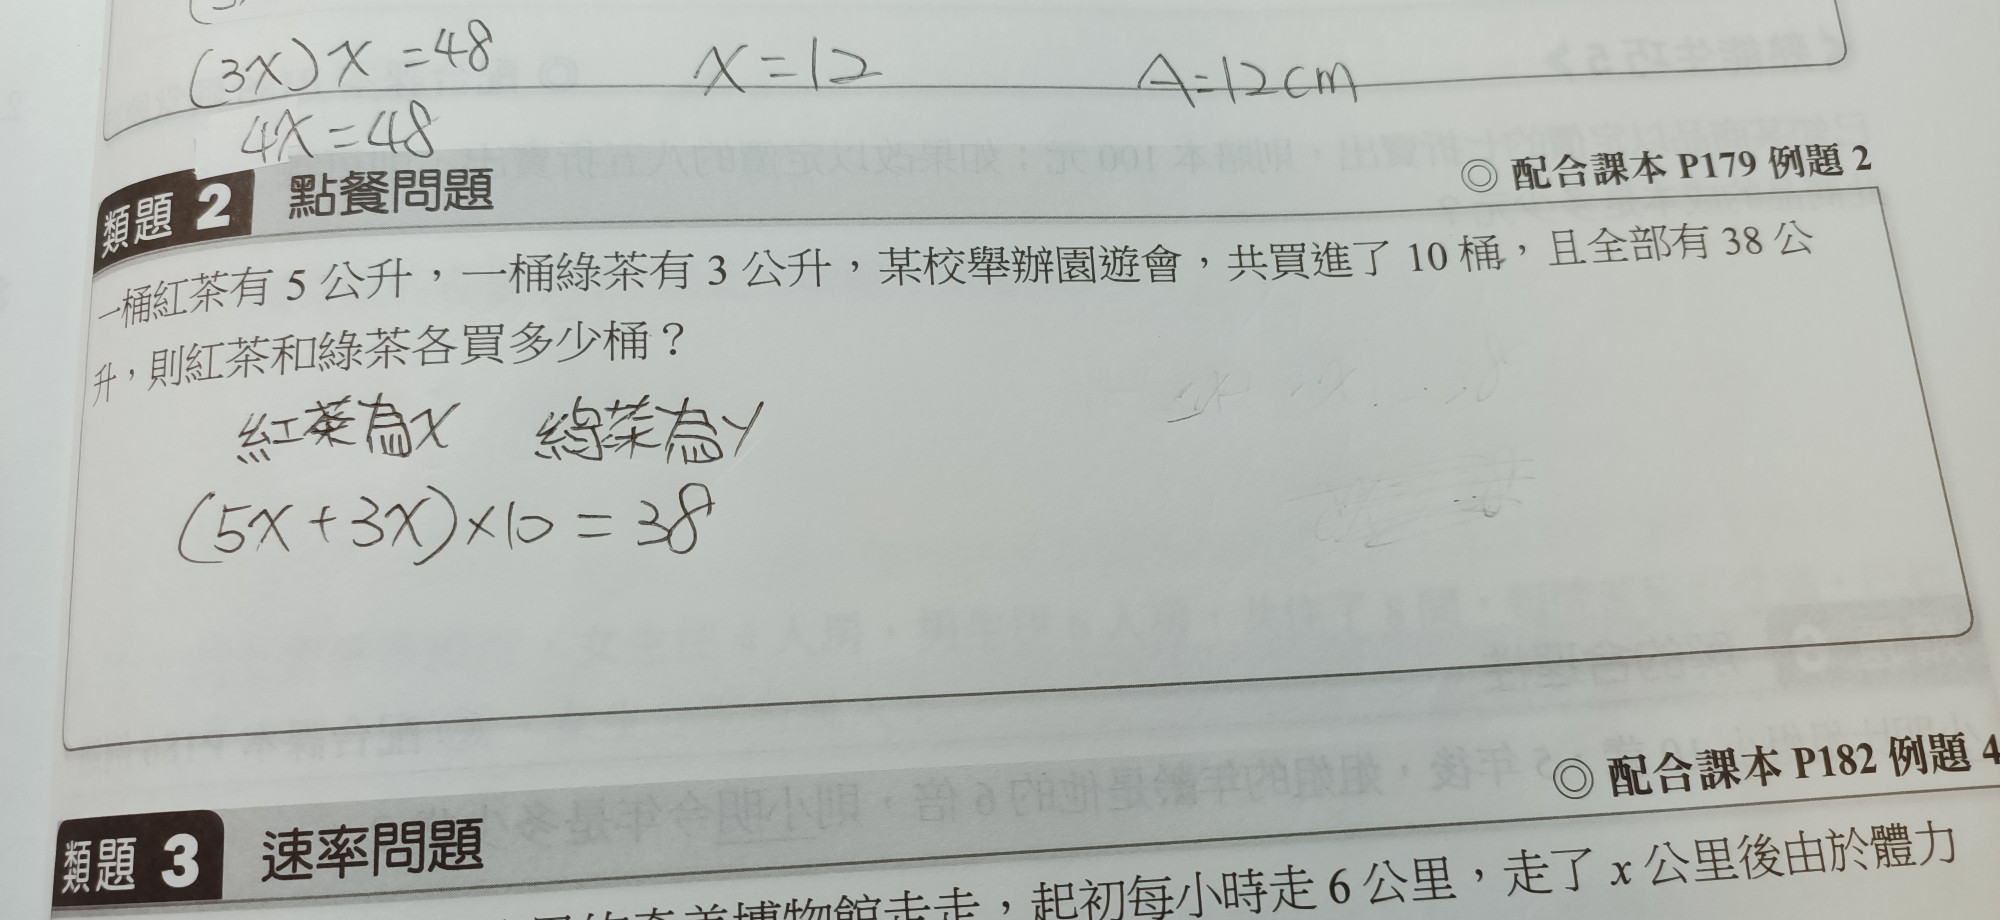 (3x)x=48 x=12 A=12cm
4x=48
類題 2 點餐問題 ◎ 配合課本 P179 例題 2
一桶紅茶有 5 公升，一桶綠茶有 3 公升，某校舉辦園遊會，共買進了 10 桶，且全部有 38 公
升，則紅茶和綠茶各買多少桶？
紅茶為x 綠茶為y
(5x+3x)×10=38
◎ 配合課本 P182 例題 4
類題 3 速率問題
博物館走走，起初每小時走 6 公里，走了 x 公里後由於體力